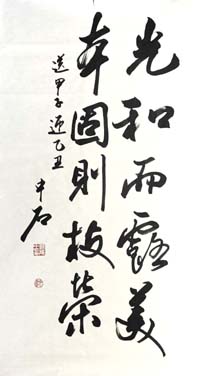 光和雨露美
本固則枝榮
送甲子迎乙丑
中石